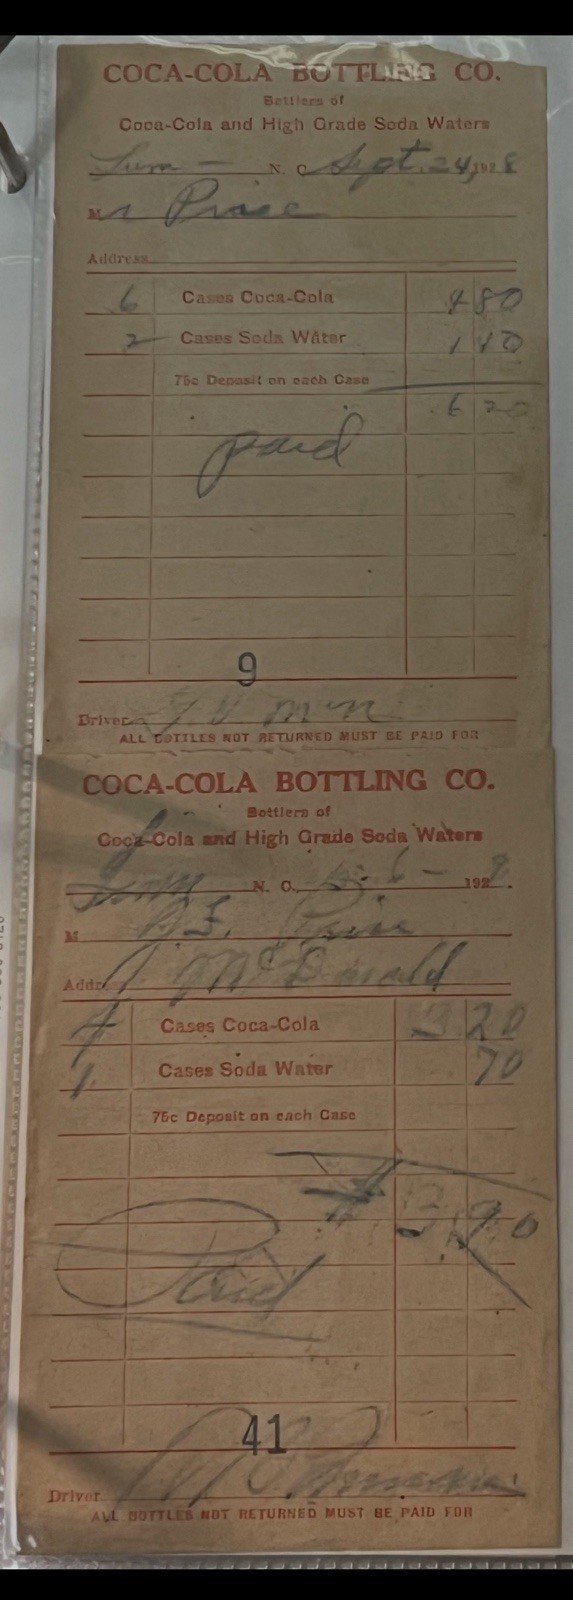 COCA-COLA BOTTLING CO.
Bottlers of
Coca-Cola and High Grade Soda Waters
Lum - N. C. Sept. 24, 1928
Mr
Address
6 Cases Coca-Cola 4 80
2 Cases Soda Water 1 40
75c Deposit on each Case
6 20
paid
9
Driver
ALL BOTTLES NOT RETURNED MUST BE PAID FOR
COCA-COLA BOTTLING CO.
Bottlers of
Coca-Cola and High Grade Soda Waters
Lum N. C., 6 - 192
M
Addr McDonald
4 Cases Coca-Cola 3 20
1 Cases Soda Water 70
75c Deposit on each Case
# 3,90
Paid
41
Driver
ALL BOTTLES NOT RETURNED MUST BE PAID FOR